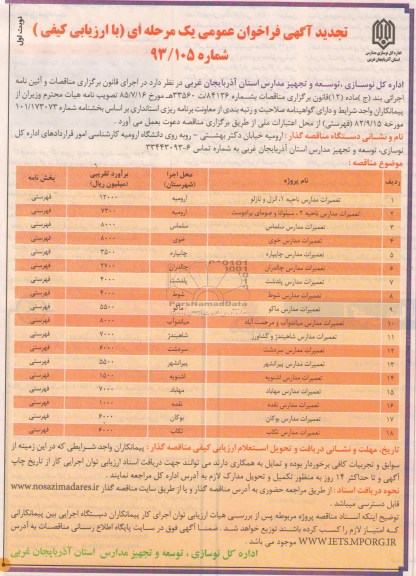 نوبت اول
تجدید آگهی فراخوان عمومی یک مرحله ای (با ارزیابی کیفی )
شماره ۹۳/۱۰۵
اداره کل نوسازی، توسعه و تجهیز مدارس استان آذربایجان غربی
اداره کل نوسازی ،توسعه و تجهیز مدارس استان آذربایجان غربی در نظر دارد در اجرای قانون برگزاری مناقصات و آئین نامه
اجرائی بند (ج)ماده (۱۲)قانون برگزاری مناقصات بشماره ۸۴۱۳۶/ت ۳۳۵۶۰هـ مورخ ۸۵/۷/۱۶ تصویب نامه هیات محترم وزیران از
پیمانکاران واجد شرایط و دارای گواهینامه صلاحیت و رتبه بندی از معاونت برنامه ریزی استانداری بر اساس بخشنامه شماره ۱۰۱/۱۷۳۰۷۳
مورخه ۸۲/۹/۱۵ (فهرستی) از محل اعتبارات ملی از طریق برگزاری مناقصه دعوت بعمل می آورد .
نام و نشانی دستگاه مناقصه گذار : ارومیه خیابان دکتر بهشتی - روبه روی دانشگاه ارومیه کارشناسی امور قراردادهای اداره کل
نوسازی، توسعه و تجهیز مدارس استان آذربایجان غربی به شماره تماس ۶-۳۳۴۴۳۰۹۲
موضوع مناقصه :
ردیف نام پروژه محل اجرا (شهرستان) برآورد تقریبی (میلیون ریال) بخش نامه
۱ تعمیرات مدارس ناحیه ۱، انزل و نازلو ارومیه ۱۲۰۰۰ فهرستی
۲ تعمیرات مدارس ناحیه ۲ ، سیلوانا و صومای برادوست ارومیه ۷۳۰۰ فهرستی
۳ تعمیرات مدارس سلماس سلماس ۸۰۰۰ فهرستی
۴ تعمیرات مدارس خوی خوی ۸۰۰۰ فهرستی
۵ تعمیرات مدارس چایپاره چایپاره ۳۵۰۰ فهرستی
۶ تعمیرات مدارس چالدران چالدران ۲۷۰۰ فهرستی
۷ تعمیرات مدارس پلدشت پلدشت ۴۰۰۰ فهرستی
۸ تعمیرات مدارس شوط شوط ۴۰۰۰ فهرستی
۹ تعمیرات مدارس ماکو ماکو ۵۵۰۰ فهرستی
۱۰ تعمیرات مدارس میاندوآب و مرحمت آباد میاندوآب ۸۰۰۰ فهرستی
۱۱ تعمیرات مدارس شاهیندژ و کشاورز شاهیندژ ۷۰۰۰ فهرستی
۱۲ تعمیرات مدارس سردشت سردشت ۶۰۰۰ فهرستی
۱۳ تعمیرات مدارس پیرانشهر پیرانشهر ۵۵۰۰ فهرستی
۱۴ تعمیرات مدارس اشنویه اشنویه ۱۵۰۰ فهرستی
۱۵ تعمیرات مدارس مهاباد مهاباد ۷۰۰۰ فهرستی
۱۶ تعمیرات مدارس نقده نقده ۱۰۰۰ فهرستی
۱۷ تعمیرات مدارس بوکان بوکان ۶۰۰۰ فهرستی
۱۸ تعمیرات مدارس تکاب تکاب ۶۰۰۰ فهرستی
ParsNamadData
تاریخ، مهلت و نشانی دریافت و تحویل استعلام ارزیابی کیفی مناقصه گذار : پیمانکاران واجد شرایطی که در این زمینه از
سوابق و تجربیات کافی برخوردار بوده و تمایل به همکاری دارند می توانند جهت دریافت اسناد ارزیابی توان اجرایی کار از تاریخ چاپ
آگهی و تا حداکثر ۱۴ روز به منظور تکمیل و تحویل مدارک لازم به آدرس اداره کل مراجعه نمایند .
نحوه دریافت اسناد : از طریق مراجعه حضوری به آدرس مناقصه گذار و یا از طریق سایت مناقصه گذار www.nosazimadares.ir
قابل دسترسی میباشد .
توضیح اینکه اسناد مناقصه پروژه مربوطه پس از بررسی هیات ارزیابی توان اجرای کار پیمانکاران دستگاه اجرایی بین پیمانکارانی
که امتیاز لازم را کسب کرده باشند توزیع خواهد شد . ضمنا آگهی فوق در سایت پایگاه اطلاع رسانی مناقصات به آدرس
WWW.IETS.MPORG.IR موجود می باشد .
اداره کل نوسازی ، توسعه و تجهیز مدارس استان آذربایجان غربی